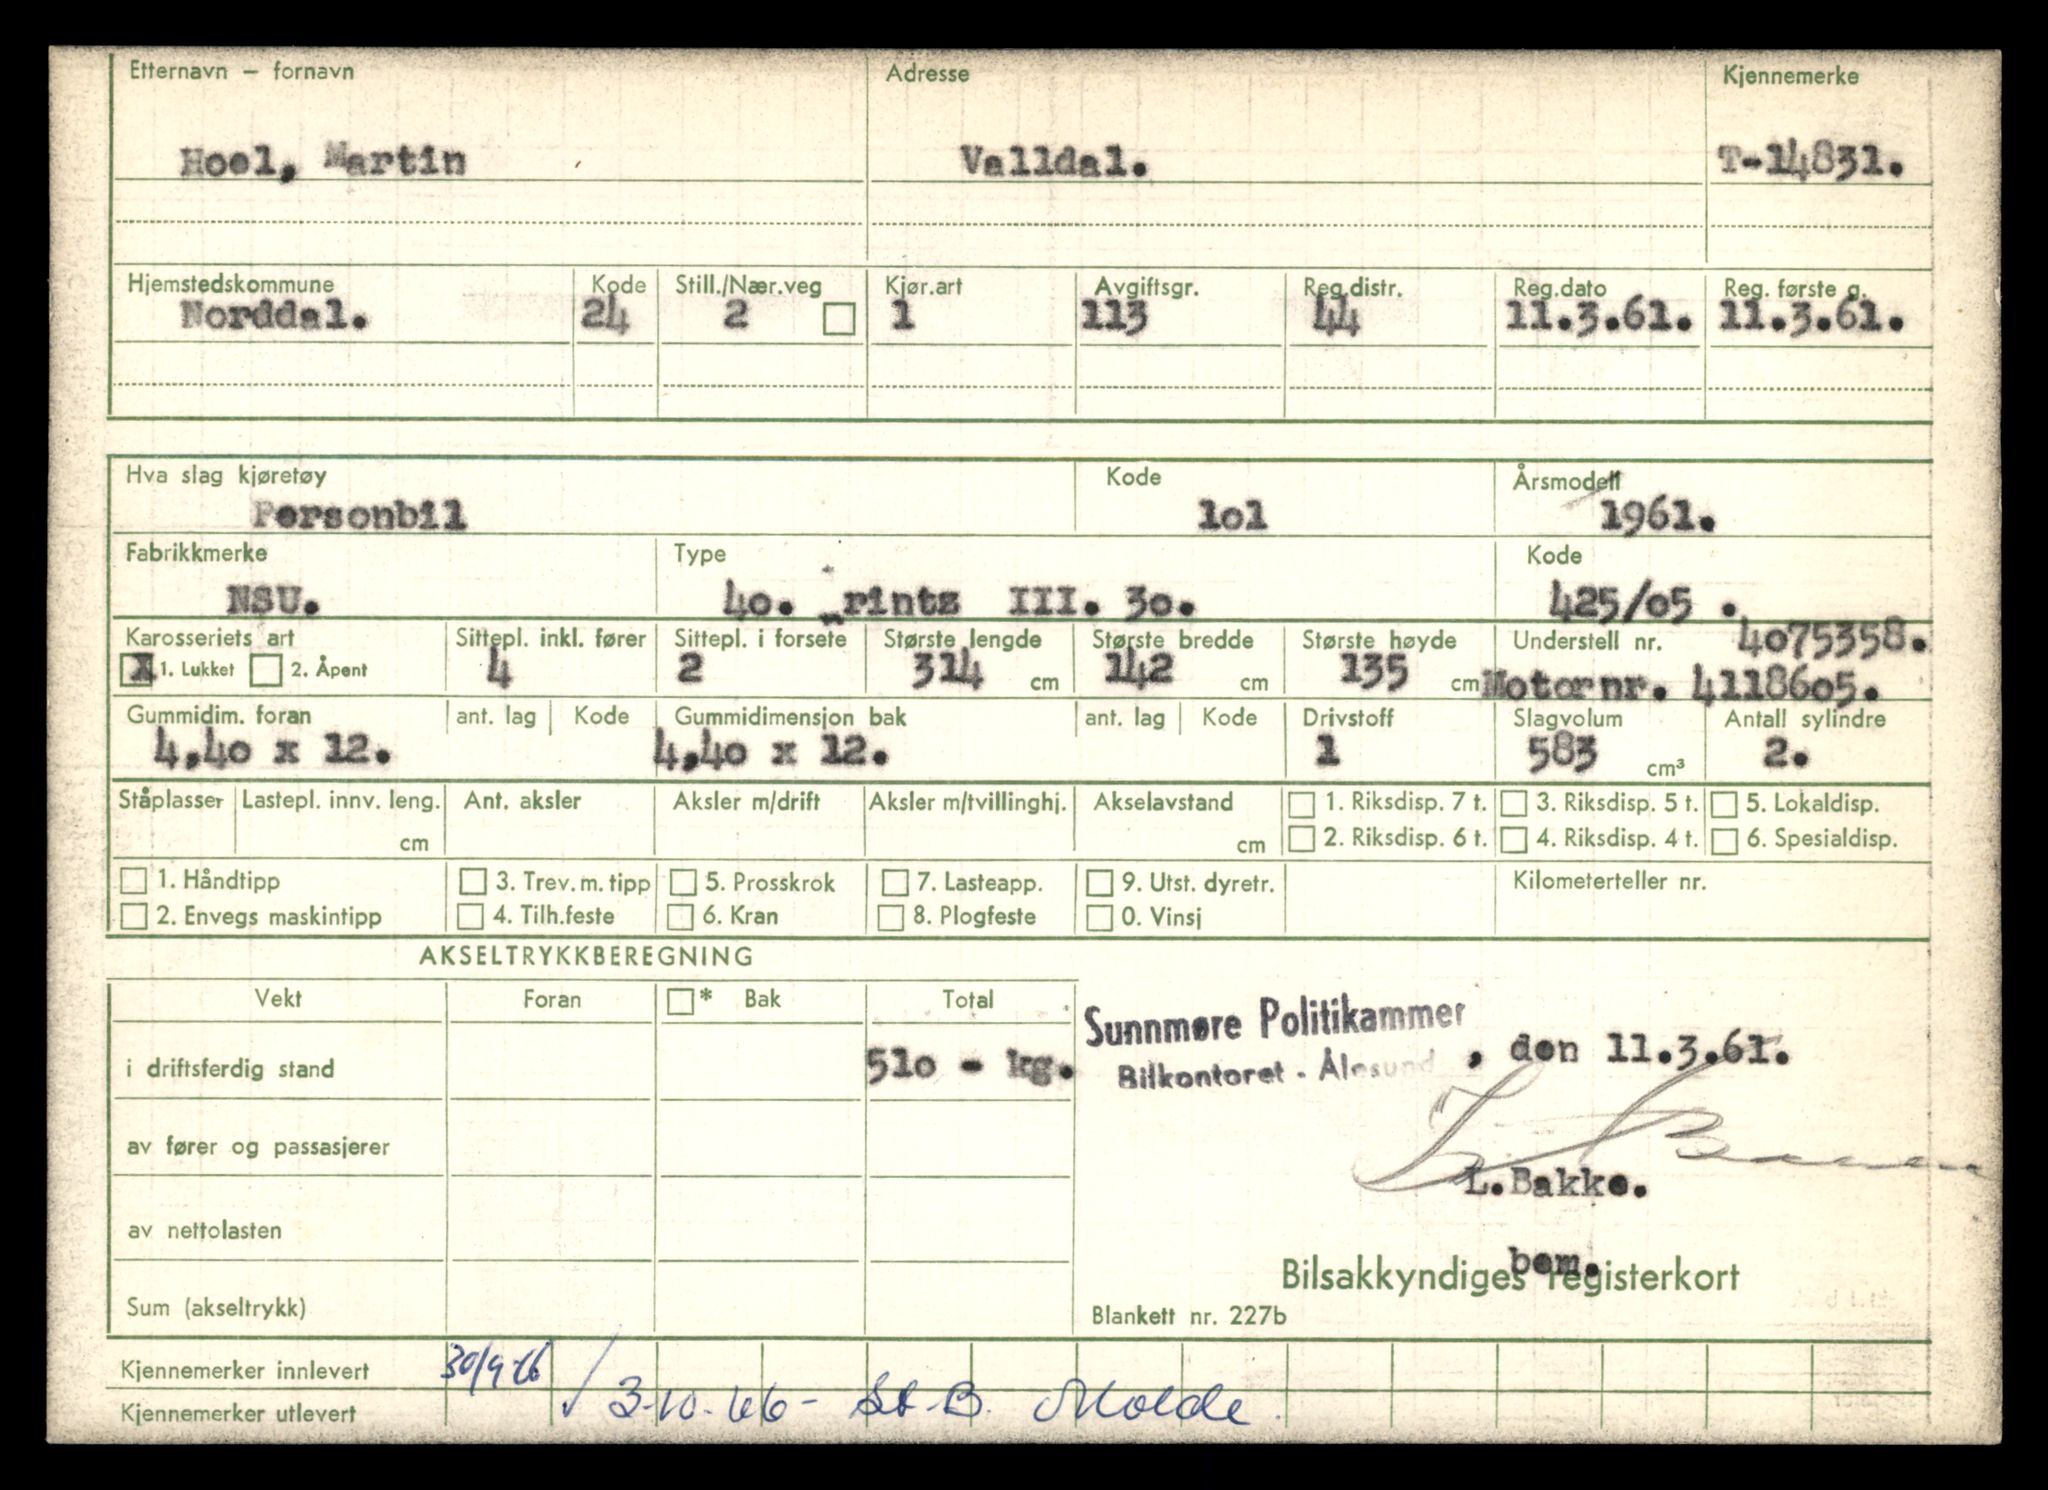 Etternavn – fornavn Adresse Kjennemerke
Hoel, Martin Valldal. T-14831.
Hjemstedskommune Kode Still./Nær.veg Kjør.art Avgiftsgr. Reg.distr. Reg.dato Reg. første g.
Norddal. 24 2 1 113 44 11.3.61. 11.3.61.
Hva slag kjøretøy Kode Årsmodell
Personbil 1o1 1961.
Fabrikkmerke Type Kode
NSU. 4o. rintz III. 3o. 425/o5 .
Karosseriets art Sittepl. inkl. fører Sittepl. i forsete Største lengde Største bredde Største høyde Understell nr. 4o75358.
X 1. Lukket 2. Åpent 4 2 314 cm 142 cm 135 cm Motornr. 41186o5.
Gummidim. foran ant. lag Kode Gummidimensjon bak ant. lag Kode Drivstoff Slagvolum Antall sylindre
4,4o x 12. 4,4o x 12. 1 583 cm³ 2.
Ståplasser Lastepl. innv. leng. Ant. aksler Aksler m/drift Aksler m/tvillinghj. Akselavstand 1. Riksdisp. 7 t. 3. Riksdisp. 5 t. 5. Lokaldisp.
cm cm 2. Riksdisp. 6 t. 4. Riksdisp. 4 t. 6. Spesialdisp.
1. Håndtipp 3. Trev. m. tipp 5. Prosskrok 7. Lasteapp. 9. Utst. dyretr. Kilometerteller nr.
2. Envegs maskintipp 4. Tilh.feste 6. Kran 8. Plogfeste 0. Vinsj
AKSELTRYKKBEREGNING
Vekt Foran * Bak Total
Sunnmøre Politikammer
i driftsferdig stand 51o - kg. , den 11.3.61.
Bilkontoret - Ålesund
av fører og passasjerer
L.Bakke.
av nettolasten
bem.
Bilsakkyndiges registerkort
Sum (akseltrykk) Blankett nr. 227b
Kjennemerker innlevert 30/9-66
Kjennemerker utlevert 3-10-66- St.B. Molde.